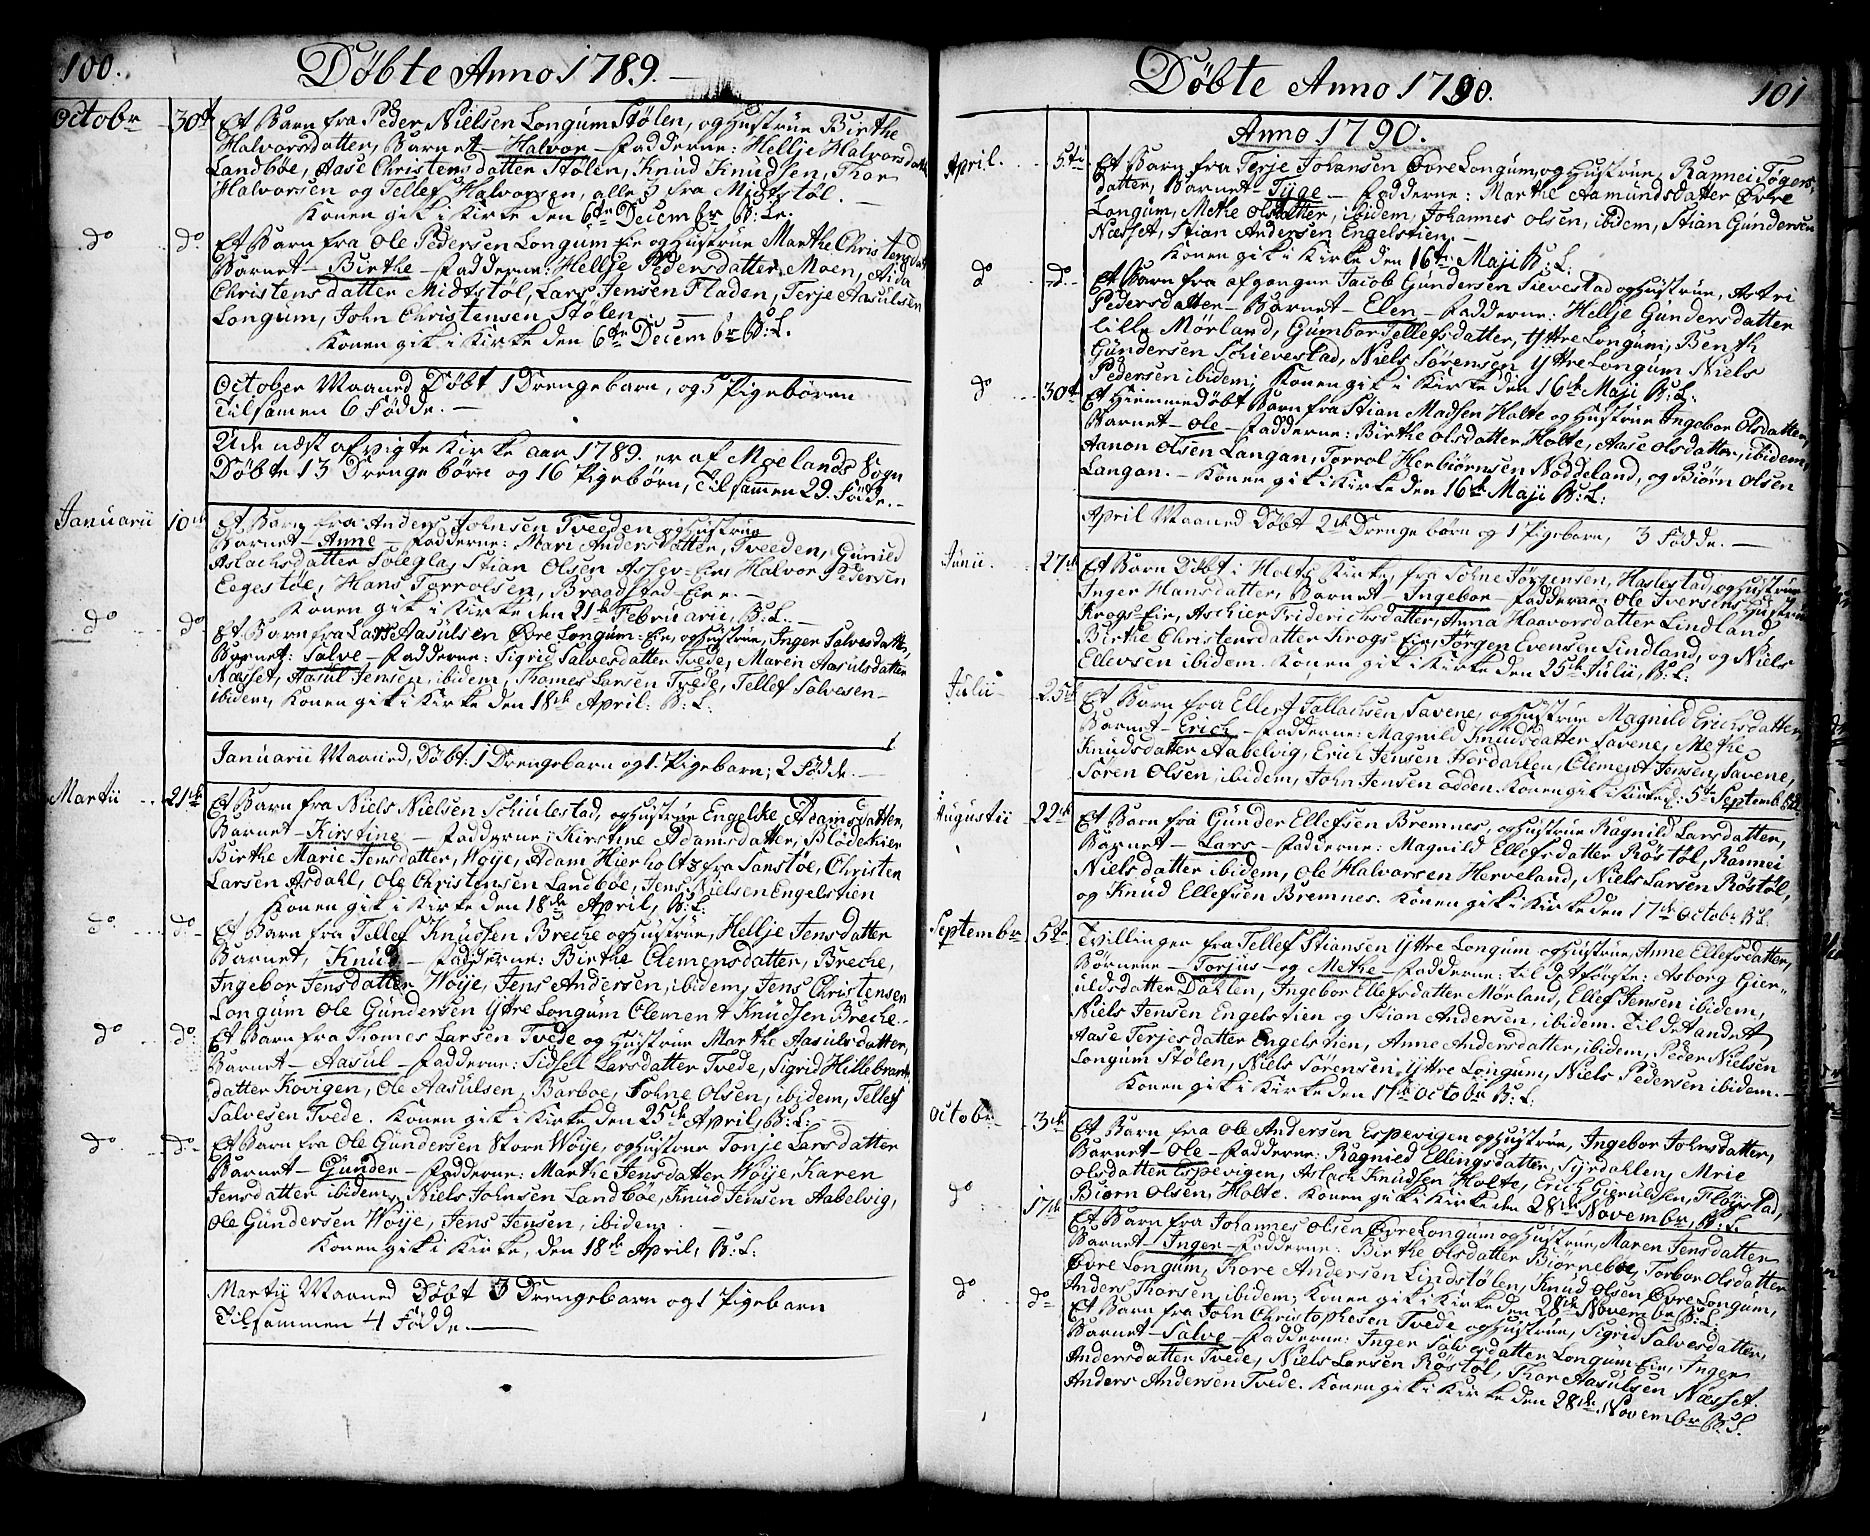 100. Döbte Anno 1789.
Octobr 30te Et Barn fra Peder Nielsen Longum Stølen, og Hustrue Birthe
Halvorsdatter, Barnet – Halvor – Fadderne: Hellje Halvorsdatt
Landböe, Aase Christensdatter Stølen, Knud Knudsen, Thor
Halvorsen og Tellef Halvorsen, alle 3 fra Midtstöl. –
Konen gik i Kirke den 6te Decembr B: L:
do do Et Barn fra Ole Pedersen Longum Eie og Hustrue Marthe Christensdat
Barnet – Birthe – Fadderne: Hellje Pedersdatter Moen, Aida
Christensdatter Midtstöl, Lars Jensen Fladen, Terje Aasulsen
Longum, John Christensen Stölen. –
Konen gik i Kirke den 6te Decembr B: L.
October Maaned Döbt 1 Drengebarn, og 5 Pigebören
Tilsamen 6 Födde. –
Ude næst afvigte Kirke aar 1789. er af Moelands Sogn
Döbte 13 Drenge börn og 16 Pigebörn, Tilsammen 29. Födte. –
Januarii 10de Et Barn fra Anders Johnsen Tveeden og Hustrue
Barnet – Anne – Fadderne: Mari Andersdatter, Tveeden, Gunild
Aslachsdatter Soleglad, Stian Olsen Asser-Eie, Halvor Pedersen
Eegestöe, Hans Torrolsen, Braadstad-Eie. –
Konen gik i Kirke den 21de Februarii, B: L. –
do do Et Barn fra Lars Aasulsen Øvre Longum-Eie, og Hustrue, Inger Salvesdatter,
Barnet: Salve – Fadderne: Sigrid Salvesdatter Tvede, Maren Aasulsdatter
Næsset, Aasul Jensen, ibidem, Thomes Larsen Tvede, Tellef Salvesen
ibidem, Konen gik i Kirke den 18de April: B: L:
Januarii Maaned, Döbt: 1 Drengebarn og 1. Pigebarn; 2 Födde. –
Martii 21de Et Barn fra Niels Nielsen Schiulestad, og Hustrue Engelke Adamsdatter,
Barnet – Kirstine – Fadderne: Kirstine Adamsdatter, Blödekier
Birthe Marie Jensdatter, Woje, Adam Hierholtz fra Sanstöe, Christen
Larsen Asdahl, Ole Christensen Landböe, Jens Nielsen Engelstien
Konen gik i Kirke den 18de April, B: L:
do do Et Barn fra Tellef Knudsen Breche og Hustrue, Hellje Jensdatter
Barnet, Knud – Fadderne: Birthe Clemensdatter, Breche,
Ingebor Jensdatter, Woije, Jens Andersen, ibidem, Jens Christensen
Longum Ole Gundersen Yttre Longum Clement Knudsen Breche.
do do Et Barn fra Thomes Larsen Tvede og Hustrue Marthe Aasulsdatter,
Barnet – Aasul – Fadderne: Sidsel Larsdatter Tvede, Sigrid Hillebrants
datter Kovigen, Ole Aasulsen, Barboe, Sohne Olsen, ibidem, Tellef
Salvesen Tvede. Konen gik i Kirke den 25de April, B: L: –
do do Et Barn fra Ole Gundersen Store Woije, og Hustrue Tonje Larsdatter
Barnet – Gunder – Fadderne: Marthe Jensdatter Woije, Karen
Jensdatter ibidem, Niels Johnsen Landböe, Knud Jensen Aabelvig,
Ole Gundersen Woije, Jens Jensen, ibidem. –
Konen gik i Kirke, den 18de April, B: L:
Martii Maaned Döbt 3 Drengebarn og 1 Pigebarn
Tilsammen 4 Födde. –
Döbte Anno 1790. 101
Anno 1790.
April. 5te Et Barn fra Terje Johansen Øvre Longum, og Hustrue, Rannei Tögers
datter, Barnet – Tyge – Fadderne: Marthe Aamundsdatter Øvre
Longum, Methe Olsdatter, ibidem, Johannes Olsen, ibidem, Stian Gundersen
Næsset, Stian Andersen Engelstien. –
Konen gik i Kirke den 16te Maji B: L:
do do Et Barn fra afgangne Jacob Gundersen Sievestad og Hustrue, Astri
Pedersdatter – Barnet – Elen – Fadderne: Hellje Gundersdatter
lille Mörland, Gumbor Tellefsdatter, Yttre Longum, Benth
Gundersen Schievestad, Niels Sörensen Yttre Longum Niels
Pedersen ibidem; Konen gik i Kirke den 16de Maji B: L:
do 30te Et Hiemmedöbt Barn fra Stian Madsen Holte og Hustrue Ingebor Olsdatter,
Barnet – Ole – Fadderne: Birthe Olsdatter Holte, Aase Olsdatter, ibidem,
Aanon Olsen Langan, Torrol Herbiörnsen Noddeland, og Biörn Olsen
Langan. – Konen gik i Kirke den 16de Maji B: L:
April Maaned Döbt 2de Drenge börn og 1 Pigebarn, 3 Födde. –
Junii 27de Et Barn Döbt i Holte Kirke, fra Sohne Jörgensen, Haslestad, og Hustrue
Inger Hansdatter, Barnet – Ingebor – Fadderne: Ole Iversens Hustrue
Krogs Eie, Aschier Friderichsdatter, Anna Haavorsdatter Lindland,
Birthe Christensdatter Krogs Eie, Jörgen Evensen Lindland, og Niels
Ellevsen ibidem. Konen gik i Kirke den 25de Julii, B: L:
Julii 25de Et Barn fra Ellef Tallachsen, Savene, og Hustrue Magnild Erichsdatter,
Barnet – Erich – Fadderne: Magnild Knudsdatter Savene, Methe
Knudsdatter Aabelvig, Erich Jensen Herdahlen, Clement Jensen, Savene,
Sören Olsen ibidem, John Jensen Odden. Konen gik i Kirke d: 5te Septemb: B: L:
Augustii 22de Et Barn fra Gunder Ellefsen Bremnes, og Hustrue Ragnild Larsdatter,
Barnet – Lars – Fadderne: Magnild Ellefsdatter Röstöl, Rannei
Nielsdatter ibidem, Ole Halvorsen Herveland, Niels Larsen Röstöl,
og Knud Ellefsen Bremnes. Konen gik i Kirke den 17de Octobr B: L:
Septembr 5te Tvillinger fra Tellef Stiansen Yttre Longum og Hustrue, Anne Ellefsdatter,
Börnene – Torjus – og Methe – Fadderne: til det förste: Asborg Gier-
uldsdatter Dahlen, Ingebor Ellefsdatter Mørland, Ellef Jensen ibidem,
Niels Jensen Engelstien og Stian Andersen, ibidem. Til det andet
Aase Terjesdatter Engelstien, Anne Andersdatter, ibidem, Peder Nielsen
Longum Stölen, Niels Sörensen Yttre Longum, Niels Pedersen ibidem. –
Konen gik i Kirke den 17de Octobr B: L:
Octobr 3de Et Barn fra Ole Andersen Espevigen og Hustrue, Ingebor Johnsdatter,
Barnet – Ole – Fadderne: Ragnild Ellingsdatter, Syrdahlen, Mrie
Olsdatter Espevigen, Aslach Knudsen Holte, Erich Gieruldsen, Flögstad,
Biørn Olsen, Holte. Konen gik i Kirke den 28de Novembr, B: L
do 17de Et Barn fra Johannes Olsen Øvre Longum og Hustrue, Maren Jensdatter
Barnet – Inger – Fadderne: Birthe Olsdatter Biørneboe, Torbor Olsdatter
Øvre Longum, Tore Andersen Lindstölen, Knud Olsen Øvre Longum,
Anders Thorsen, ibidem; Konen gik i Kirke den 28de Novembr B: L:
do do Et Barn fra John Christophersen Tvede og Hustrue, Sigrid Salvesdatter,
Barnet – Salve – Fadderne: Inger Salvesdatter Longum Eie, Inger
Andersdatter Tvede, Niels Larsen Röstöl, Thor Aasulsen Næsset.
Anders Andersen Tvede. Konen gik i Kirke den 28de Novembr B: L.